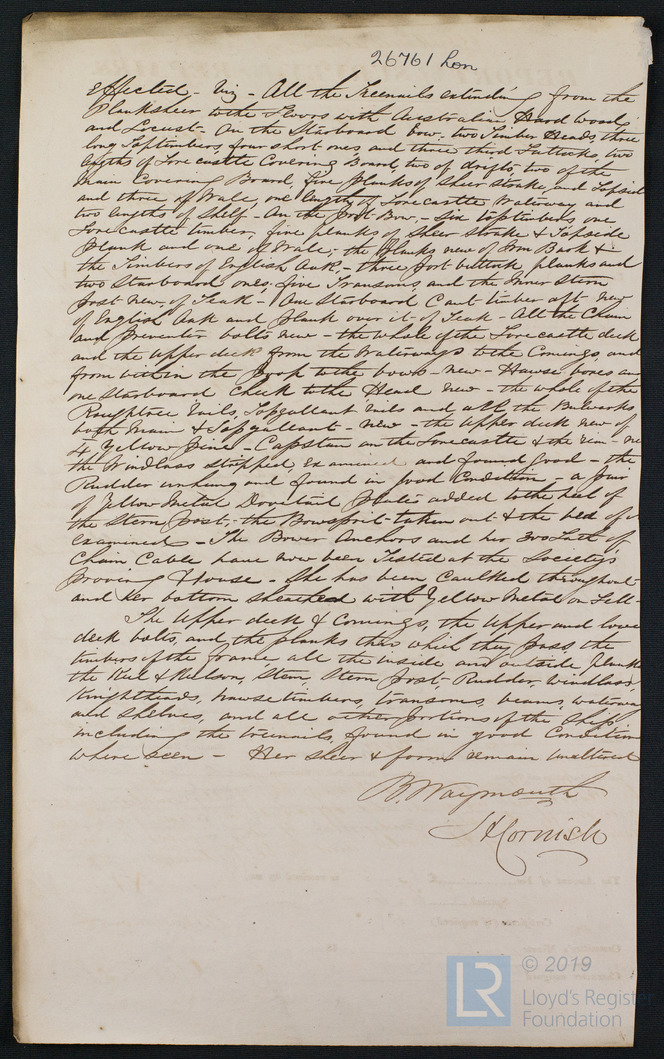 26761 Lon
effected – Viz – All the Treenails extending from the
Planksheer to the Floors with Australian Hard wood,
and Locust – On the Starboard bow, two Timber Heads, three
long Toptimbers, four short ones and three third Futtocks, two
lengths of Forecastle Covering Board, two of drifts, two of the
Main Covering Board, five planks of Sheer strake, and Topside
and three of Wale, one length of Forecastle Waterway and
two lengths of Shelf – On the Port Bow, – Six toptimbers one
Forecastle timber, five planks of Sheer strake & Topside
Plank and one of Wale; the planks new of Iron Bark &
the Timbers of English Oak, – three port buttock planks and
two Starboard ones, five Transoms and the Inner Stern
post new, of Teak – One Starboard Cant timber aft – new
of English Oak and plank over it of Teak – All the Chain
and Preventer bolts new – the whole of the Forecastle deck
and the upper deck from the Waterways to the Comings, and
from within the Poop to the bows – new – Hawse bones
one Starboard Cheek to the Head new – the whole of the
Roughtree rails, Topgallant rails and all the Bulwarks
both Main & Topgallant – new – the upper deck new of
4 Yellow Pine – Capstan on the Forecastle & the rim –
the Windlass stripped, examined and found good – the
Rudder unhung and found in good Condition – a pair
of Yellow Metal Dovetail plates added to the heel of
the Stern post, – the Bowsprit taken out & the bed of
examined – The Bower Anchors and her 270 Fath of
Chain Cable have now been Tested at the Society's
Proving House – She has been Caulked throughout
and her bottom sheathed with Yellow Metal on Felt –
The Upper deck & Comings, the Upper and lower
deck bolts, and the planks thro which they pass, the
timbers of the frame, all the inside and outside plank
the Keel & Kelson, Stem, Stern post, Rudder, Windlass
Knightheads, hawsetimbers, transoms, beams, waterways
and Shelves, and all other portions of the Ship
including the treenails, found in good Condition
where seen – Her sheer & form remain unaltered
B. Waymouth
Cornish
© 2019
LR
Lloyd's Register
Foundation